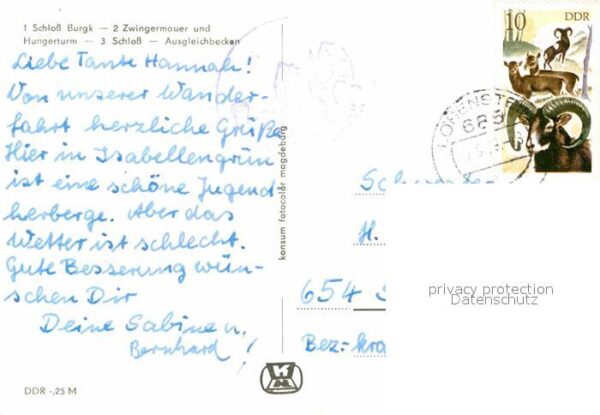 1 Schloß Burgk — 2 Zwingermauer und
Hungerturm — 3 Schloß — Ausgleichbecken
Liebe Tante Hannah!
Von unserer Wander-
fahrt herzliche Grüße
Hier in Isabellengrün
ist eine schöne Jugend
herberge. Aber das
Wetter ist schlecht.
Gute Besserung wün-
schen Dir
Deine Sabine u.
Bernhard!
DDR -,25 M
konsum fotocolor magdeburg
KM
10 DDR
LOBENSTE
685
Schwester
H.
654 S
Bez.-kra
privacy protection
Datenschutz